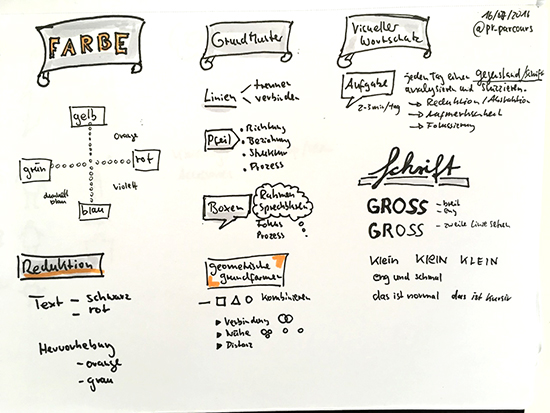 FARBE
gelb
orange
grün
rot
dunkelblau
violett
blau
Reduktion
Text - schwarz
- rot
Hervorhebung
- orange
- grau
Grundmuster
Linien
trennen
verbinden
Pfeil
• Richtung
• Beziehung
• Struktur
• Prozess
Boxen
Rahmen
Sprechblasen
Fokus
Prozess
geometrische
grundformen
kombinieren
Verbindung
Nähe
Distanz
Visueller
Wortschatz
16/07/2016
@pr.parcours
Aufgabe
2-3min/tag
jeden Tag einen gegenstand/Schrift
analysieren und skizzieren.
→ Reduktion/Abstraktion
→ Aufmerksamkeit
→ Fokussierung
Schrift
GROSS - breit
- eng
GROSS - zweite Linie ziehen
Klein KlEiN KLEIN
eng und schmal
das ist normal das ist kursiv